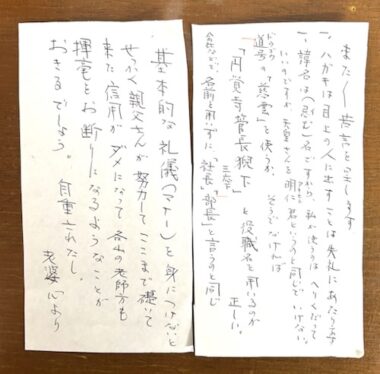 また〱苦言を呈します
一、ハガキは目上の人に出すことは失礼にあたります
一、諱名は(忌む)名ですから、私が使うのは へりくだって
いいのですが 天皇さんを明仁君というのと同じで いけない。
道号の「慈雲」を使うか、 そうでなければ
「円覚寺管長猊下 と役職名を用いるのが 正しい。
会社などで、名前を用いずに「社長」「部長」と言うのと同じ
基本的な礼儀(マナー)を身につけないと
せっかく親父さんが努力してここまで礎いて
来た信用がダメになって各山の老師方も
揮毫をお断りになるようなことが
おきるでしょう。 自重されたし。
老婆心より